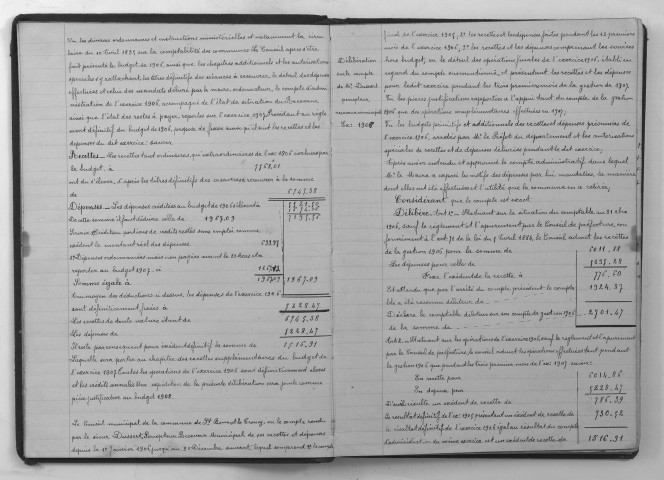 Vu les diverses ordonnances et instructions ministérielles et notamment la circu-
laire du 10 Avril 1835 sur la comptabilité des communes, le Conseil après s'être
fait présenté le budget de 1906, ainsi que les chapitres additionnels et les autorisations
spéciales s'y rattachant, les titres définitifs des créances à recouvrer, le détail des dépenses
effectuées et celui des mandats délivrés par le maire, ordonnateur, le compte d'admi-
nistration de l'exercice 1906, accompagné de l'état de situation du Receveur
ainsi que l'état des restes à payer, reportés sur l'exercice 1907. Procédant au règle-
ment définitif du budget de 1906, propose de fixer ainsi qu'il suit les recettes et les
dépenses du dit exercice: savoir
Recettes. — Les recettes tant ordinaires, qu'extraordinaires de l'ex. 1906 évaluées par
le budget, à 7768.01
ont dû s'élever, d'après les titres définitifs des créances à recouvrer à la somme
de 6745.38
Dépenses. — Les dépenses créditées au budget de 1906 s'élevant à
De cette somme il faut déduire celle de 1967.09 7195.56
somme égale à 1967.09 1967.09
Au moyen des déductions ci dessus, les dépenses de l'exercice 1906
sont définitivement fixées à 5228.47
Les recettes de toute nature étant de 6745.38
Les dépenses de 5228.47
Il reste par conséquent pour excédent définitif la somme de 1516.91
laquelle sera portée au chapitre des recettes supplémentaires du budget de
l'exercice 1907. Toutes les opérations de l'exercice 1906 sont définitivement closes
et les crédits annulés. Une expédition de la présente délibération sera jointe comme
pièce justificative au budget 1908.
Le Conseil municipal de la commune de St Bonnet le Troncy, vu le compte rendu
par le sieur Dussert, Percepteur Receveur Municipal de ses recettes et dépenses
depuis le 1er Janvier 1906 jusqu'au 31 Décembre suivant, lequel comprend 1° le compte
Délibération
sur le compte
de Mr Dussert
percepteur,
receveur municipal
Ex: 1906
final de l'exercice 1905, 2° les recettes et les dépenses faites pendant les 12 premiers
mois de l'exercice 1906, 3° les recettes et les dépenses comprenant les services
hors budget, vu le détail des opérations finales de l'exercice 1906, établi en
regard du compte susmentionné, et présentant les recettes et les dépenses
pour ledit exercice pendant les trois premiers mois de la gestion de 1907.
Vu les pièces justificatives rapportées à l'appui tant du compte de la gestion
1906 que des opérations complémentaires effectuées en 1907;
Vu les budgets primitifs et additionnels des recettes et dépenses présumées de
l'exercice 1906, arrêtés par Mr le Préfet du département et les autorisations
spéciales de recettes et de dépenses délivrées pendant le dit exercice;
Après avoir entendu et approuvé le compte administratif dans lequel
Mr le Maire a exposé les motifs des dépenses par lui mandatées, la manière
dont elles ont été effectuées et l'utilité que la commune en a retirée,
Considérant que le compte est exact
Délibère. Art. 1er — Statuant sur la situation du comptable au 31 Xbre
1906, sauf le règlement et l'apurement par le Conseil de préfecture, con-
formément à l'art. 71 de la loi du 5 Avril 1884, le Conseil admet les recettes
de la gestion 1906 pour la somme de 6011.88
Les dépenses pour celle de 5235.28
Fixe l'excédent de la recette à 776.60
Et attendu que par l'arrêté du compte précédent, le compta-
ble a été reconnu débiteur de 1924.87
Déclare le comptable débiteur sur son compte de gestion 1906
de la somme de 2701.47
Art. 2. — Statuant sur les opérations de l'exercice 1906, sauf le règlement et l'apurement
par le Conseil de préfecture, le conseil admet les opérations effectuées tant pendant
la gestion 1906 que pendant les trois premiers mois de l'ex. 1907, savoir:
En recette pour 6014.86
En dépense pour 5228.47
D'où il résulte un excédent de recette de 786.39
Le résultat définitif de l'ex. 1905 présentant un excédent de recette de 730.52
Le résultat définitif de l'exercice 1906 égal au résultat du compte
d'administration du même exercice est un excédent de recette de 1516.91